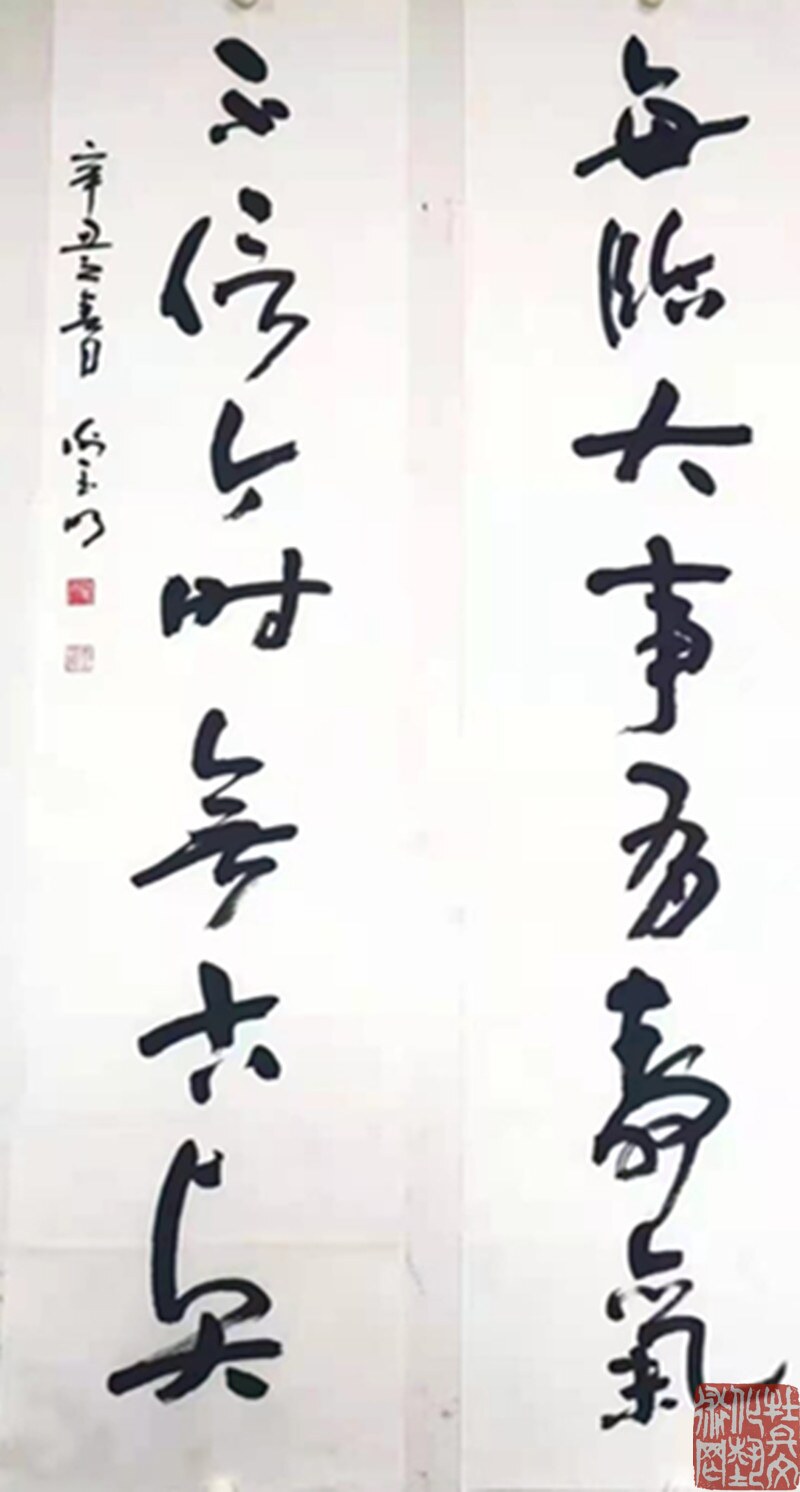 每临大事有静气
不信今时无古贤
辛丑之春日